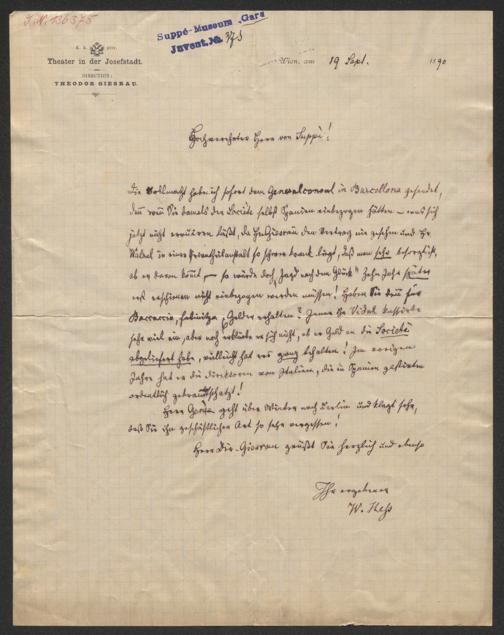 I.N. 136375
Suppé-Museum, Gars
Invent. № 373
k. k. priv.
Theater in der Josefstadt.
DIRECTION:
THEODOR GIESRAU.
Wien, am 19 Sept. 1890
Hochverehrter Herr von Suppé!
Die Vollmacht habe ich sofort dem Generalconsul in Barcellona gesendet,
denn wenn Sie damals der Société selbst Spanien einbezogen hätten – was sich
jetzt nicht eruieren läßt, da H. Giesrau den Vertrag nie gesehen und Hr.
in einer Privatheilanstalt so schwer krank liegt, daß man sehr befürchtet,
ob er davon kömmt, – so würde doch "Jagd nach dem Glück" Zehn Jahre später
erst erschienen nicht einbezogen werden müssen! Haben Sie denn für
Boccaccio, Fatinitza, Gelder erhalten? Jener Hr Vidal kassierte
sehr viel ein, aber noch erklärte er sich nicht, ob er Geld an die Societé
abgeliefert habe, vielleicht hat er's ganz behalten! Im vorigen
Jahre hat er die Direktoren von Italien, die in Spanien gastirten
ordentlich gebrandschatzt!
Herr geht über Winter nach Berlin und klagt sehr,
daß Sie ihn geschäftlicher Art so sehr vergessen!
Herr Dir. Giesrau grüßt Sie herzlich und ebenso
Ihr ergebener
W. Heß